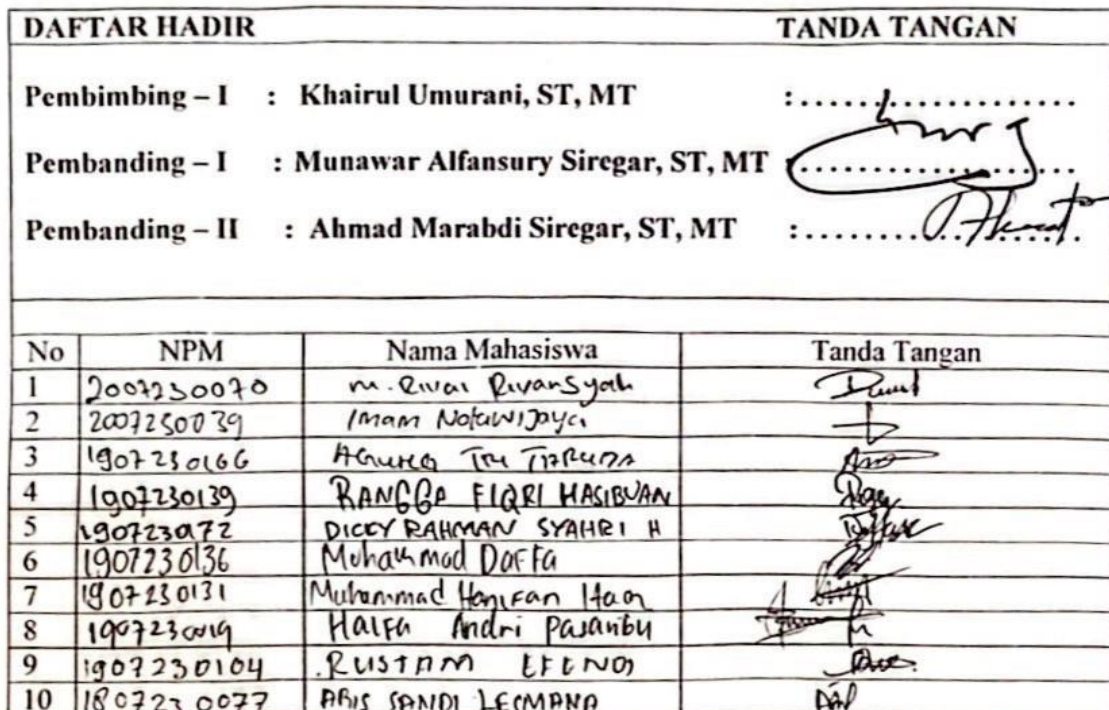 DAFTAR HADIR TANDA TANGAN
Pembimbing – I : Khairul Umurani, ST, MT :......................
Pembanding – I : Munawar Alfansury Siregar, ST, MT :......................
Pembanding – II : Ahmad Marabdi Siregar, ST, MT :......................
No NPM Nama Mahasiswa Tanda Tangan
1 2007230070 M. Rivai Rivansyah
2 2007230039 Imam Notawijaya
3 1907230166 Agung Tri
4 1907230139 RANGGA FIQRI HASIBUAN
5 190723072 DICKY RAHMAN SYAHRI H
6 1907230136 Muhammad Daffa
7 1907230131 Muhammad Hanifan
8 1907230019 Haifa Andri Pasaribu
9 1907230104 RUSTAM EFENDI
10 1807230077 ABIS SANDI LESMANA